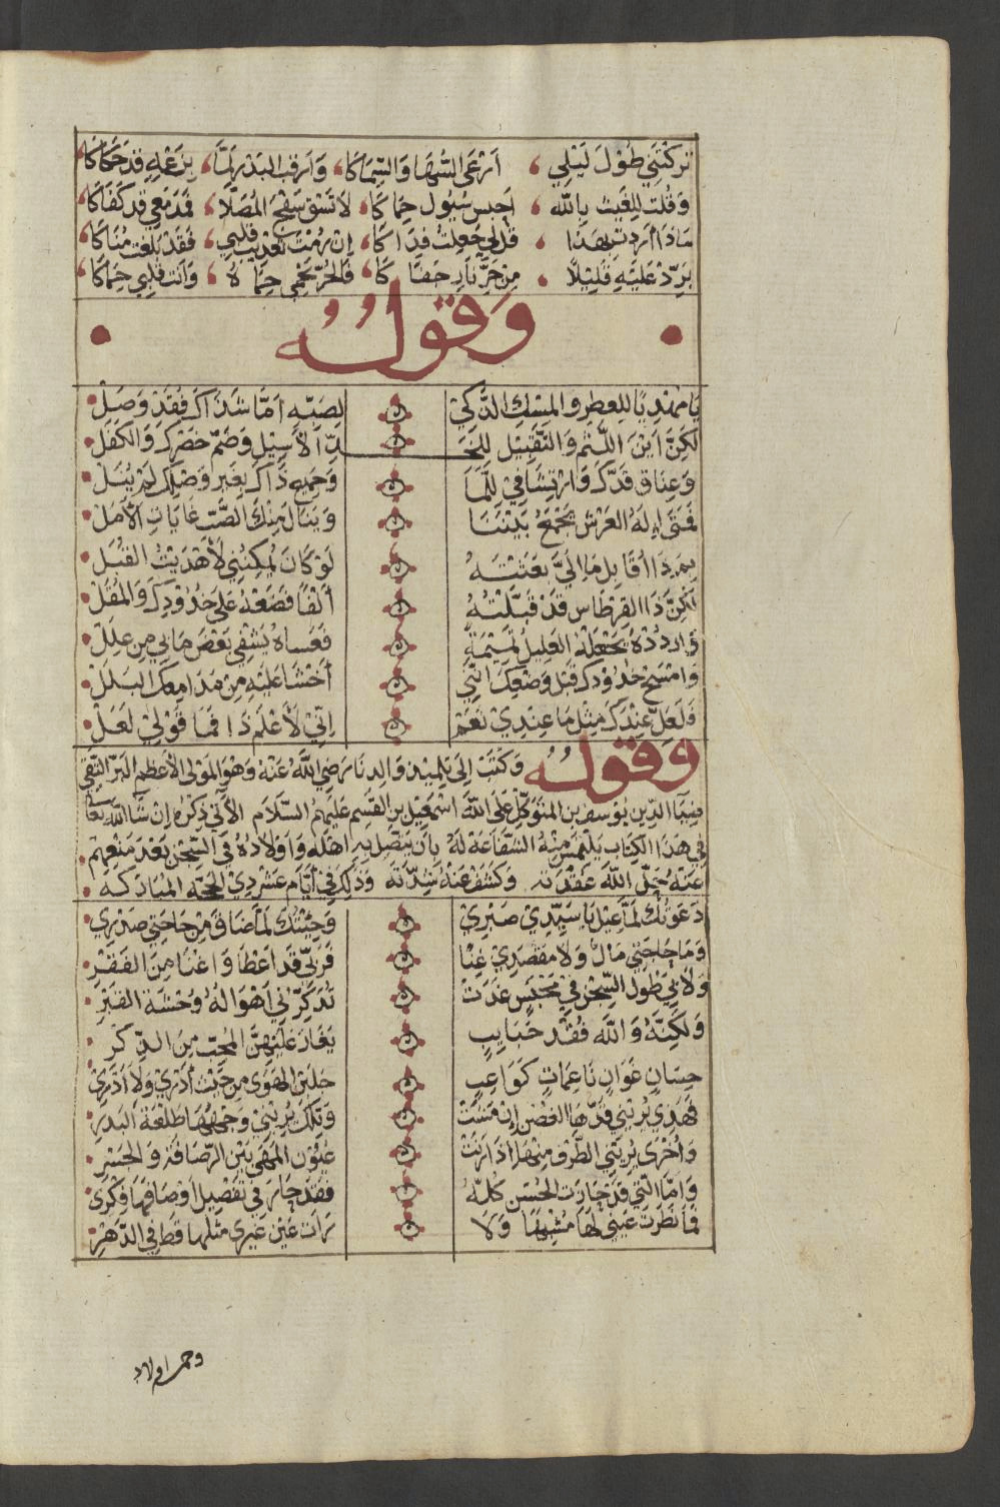 تركتني طول ليلي ، أرعى السها والسماكا ، وأرقب البدر لما ، بزعله قد حكاكا ،
وقلت للغيث بالله ، احبس سيول حماكا ، لا تسق سفح المصلا ، فدمعي قد كفاكا ،
ماذا أردت بهذا ، قل لي جعلت فداكا ، إن رمت تعذيب قلبي ، فقد بلغت مناكا ،
برد عليه قليلا ، من حر نار حفاكا ، فالحر يحمي حماه ، وأنت قلبي حماكا ،
وقوله
يا مهديا للعطر والمسك الذكي لصبه اما شذاك فقد وصل
لكن اين اللثم والتقبيل للخد الأسيل وضم خصرك والكفل
وعناق قدك وارتشافي للما وجميع ذاك بغير وصلك لم ينل
فمتى إله العرش يجمع بيننا وينال منك الصب غايات الأمل
بمذا أقابل ما اليّ بعثته لو كان يمكنني لأهديت القبل
لكن ذا القرطاس قد قبلته ألفا فضعه على خدودك والمقل
واردده يجعله العليل تميمة فعساه يشفي بعض ما بي من علل
وامسح خدودك قبل وضعك انني أخشا عليه من مدامعك البلل
فلعل عندك مثل ما عندي نعم إني لأعلم ذا فما قولي لعل
وقوله وكتب إلى تلميذ والدنا رضي الله عنه وهو المولى الأعظم البر التقي
ضياء الدين يوسف بن المتوكل على الله اسمعيل بن القسم عليهم السلام الآتي ذكره إن شا الله تعا
في هذا الكتاب يلتمس منه الشفاعة له بان يتصل به اهله واولاده في السجن بعد منعهم
عنه حل الله عقدته وكشف عنه شدته وذلك في أيام عشر ذي الحجه المباركه
دعوتك لما عيل يا سيدي صبري وجئتك لما ضاق من حاجتي صدري
وما حاجتي مال ولا مقصدي غنا فربي قد اعطا واغنا من الفقر
ولا بي طول السجن في محبس غدت تذكرني أهواله وحشة القبر
ولكنه والله فقد حبايب يغار عليهن المحب من الذكر
حسان غوان ناعمات كواعب جلبن الهوى من حيث أدري ولا أدري
فهذي يريني قدها الغصن إن مشت وتلك يريني وجهها طلعة البدر
وأخرى يريني الطرف منها اذا رنت عيون المهى بين الرصافة والجسر
واما التي قد حازت الحسن كله فقد حار في تفصيل اوصافها فكرى
فما نظرت عيني لها مشبها ولا رات عين غيرى مثلها قط في الدهر